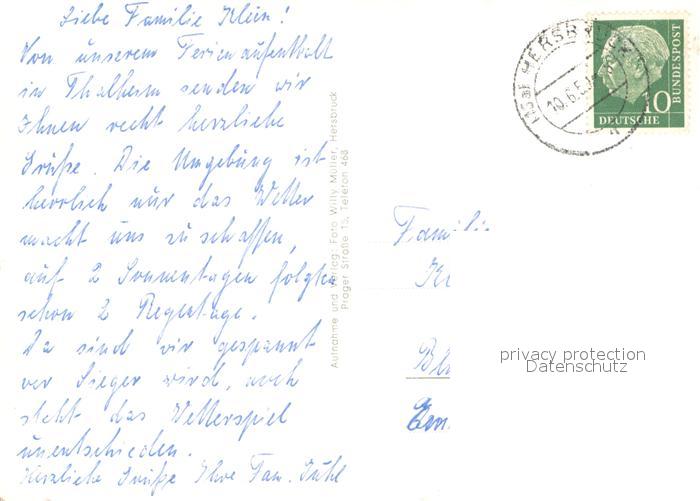 Liebe Familie Klein!
Von unserem Ferienaufenthalt
in Thalheim senden wir
Ihnen recht herzliche
Grüße. Die Umgebung ist
herrlich nur das Wetter
macht uns zu schaffen,
auf 2 Sonnentagen folgten
schon 2 Regentage.
Da sind wir gespannt
wer Sieger wird, noch
steht das Wetterspiel
unentschieden.
Herzliche Grüße Ihre Fam.
Aufnahme und Verlag: Foto Willy Müller, Hersbruck
Prager Straße 15, Telefon 468
HERSBRUCK
10.6.5
10
DEUTSCHE
BUNDESPOST
Famili
privacy protection
Datenschutz